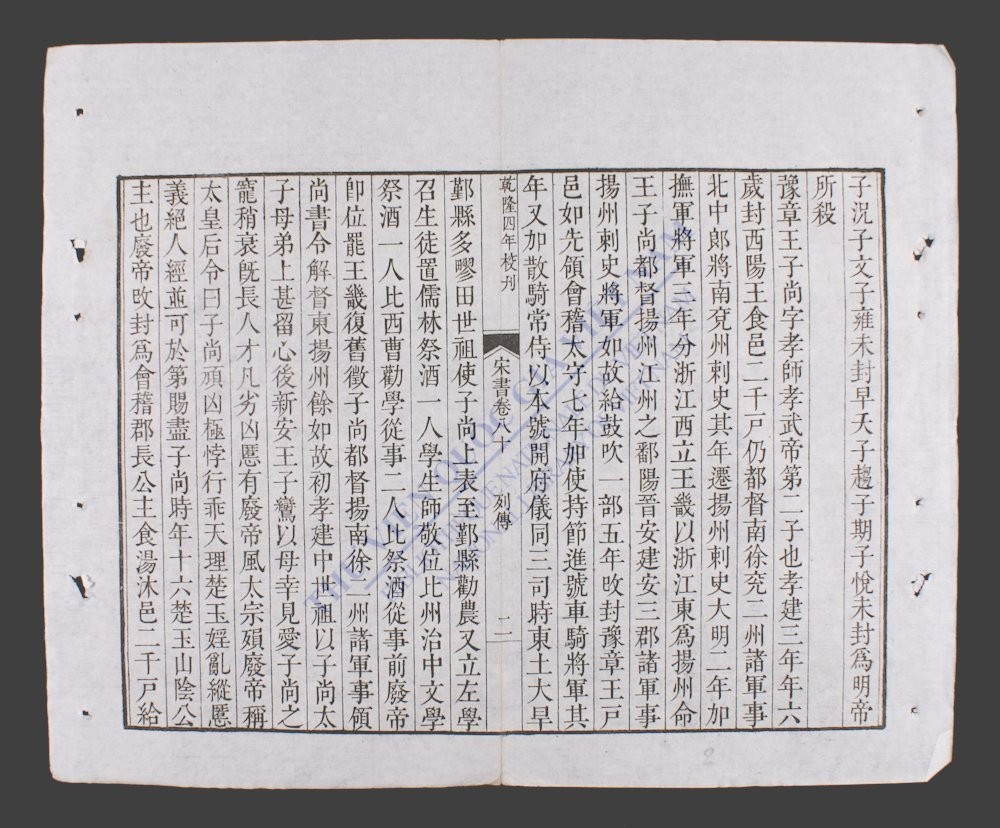 子況子文子雍未封早夭子趨子期子悅未封為明帝
所殺
豫章王子尚字孝師孝武帝第二子也孝建三年年六
歲封西陽王食邑二千戶仍都督南徐兗二州諸軍事
北中郎將南兗州刺史其年遷揚州刺史大明二年加
撫軍將軍三年分浙江西立王畿以浙江東為揚州命
王子尚都督揚州江州之鄱陽晉安建安三郡諸軍事
揚州刺史將軍如故給鼓吹一部五年改封豫章王戶
邑如先領會稽太守七年加使持節進號車騎將軍其
年又加散騎常侍以本號開府儀同三司時東土大旱
乾隆四年校刊
宋書卷八十 列傳 二
鄞縣多㽹田世祖使子尚上表至鄞縣勸農又立左學
召生徒置儒林祭酒一人學生師敬位比州治中文學
祭酒一人比西曹勸學從事二人比祭酒從事前廢帝
卽位罷王畿復舊徵子尚都督揚南徐二州諸軍事領
尚書令解督東揚州餘如故初孝建中世祖以子尚太
子母弟上甚留心後新安王子鸞以母幸見愛子尚之
寵稍衰旣長人才凡劣凶慝有廢帝風太宗殞廢帝稱
太皇后令曰子尚頑凶極悖行乖天理楚玉婬亂縱慝
義絕人經並可於第賜盡子尚時年十六楚玉山陰公
主也廢帝改封為會稽郡長公主食湯沐邑二千戶給